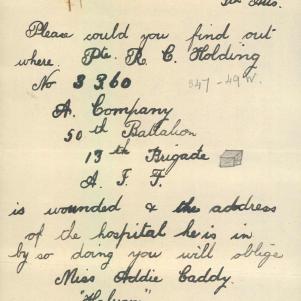 Please could you find out
where. Pte. R. C. Holding
No 3360
347-49 W.
A. Company
50th Battalion
13th Brigade
A. I. F.
is wounded & the address
of the hospital he is in
by so doing you will oblige
Miss Addie Caddy.